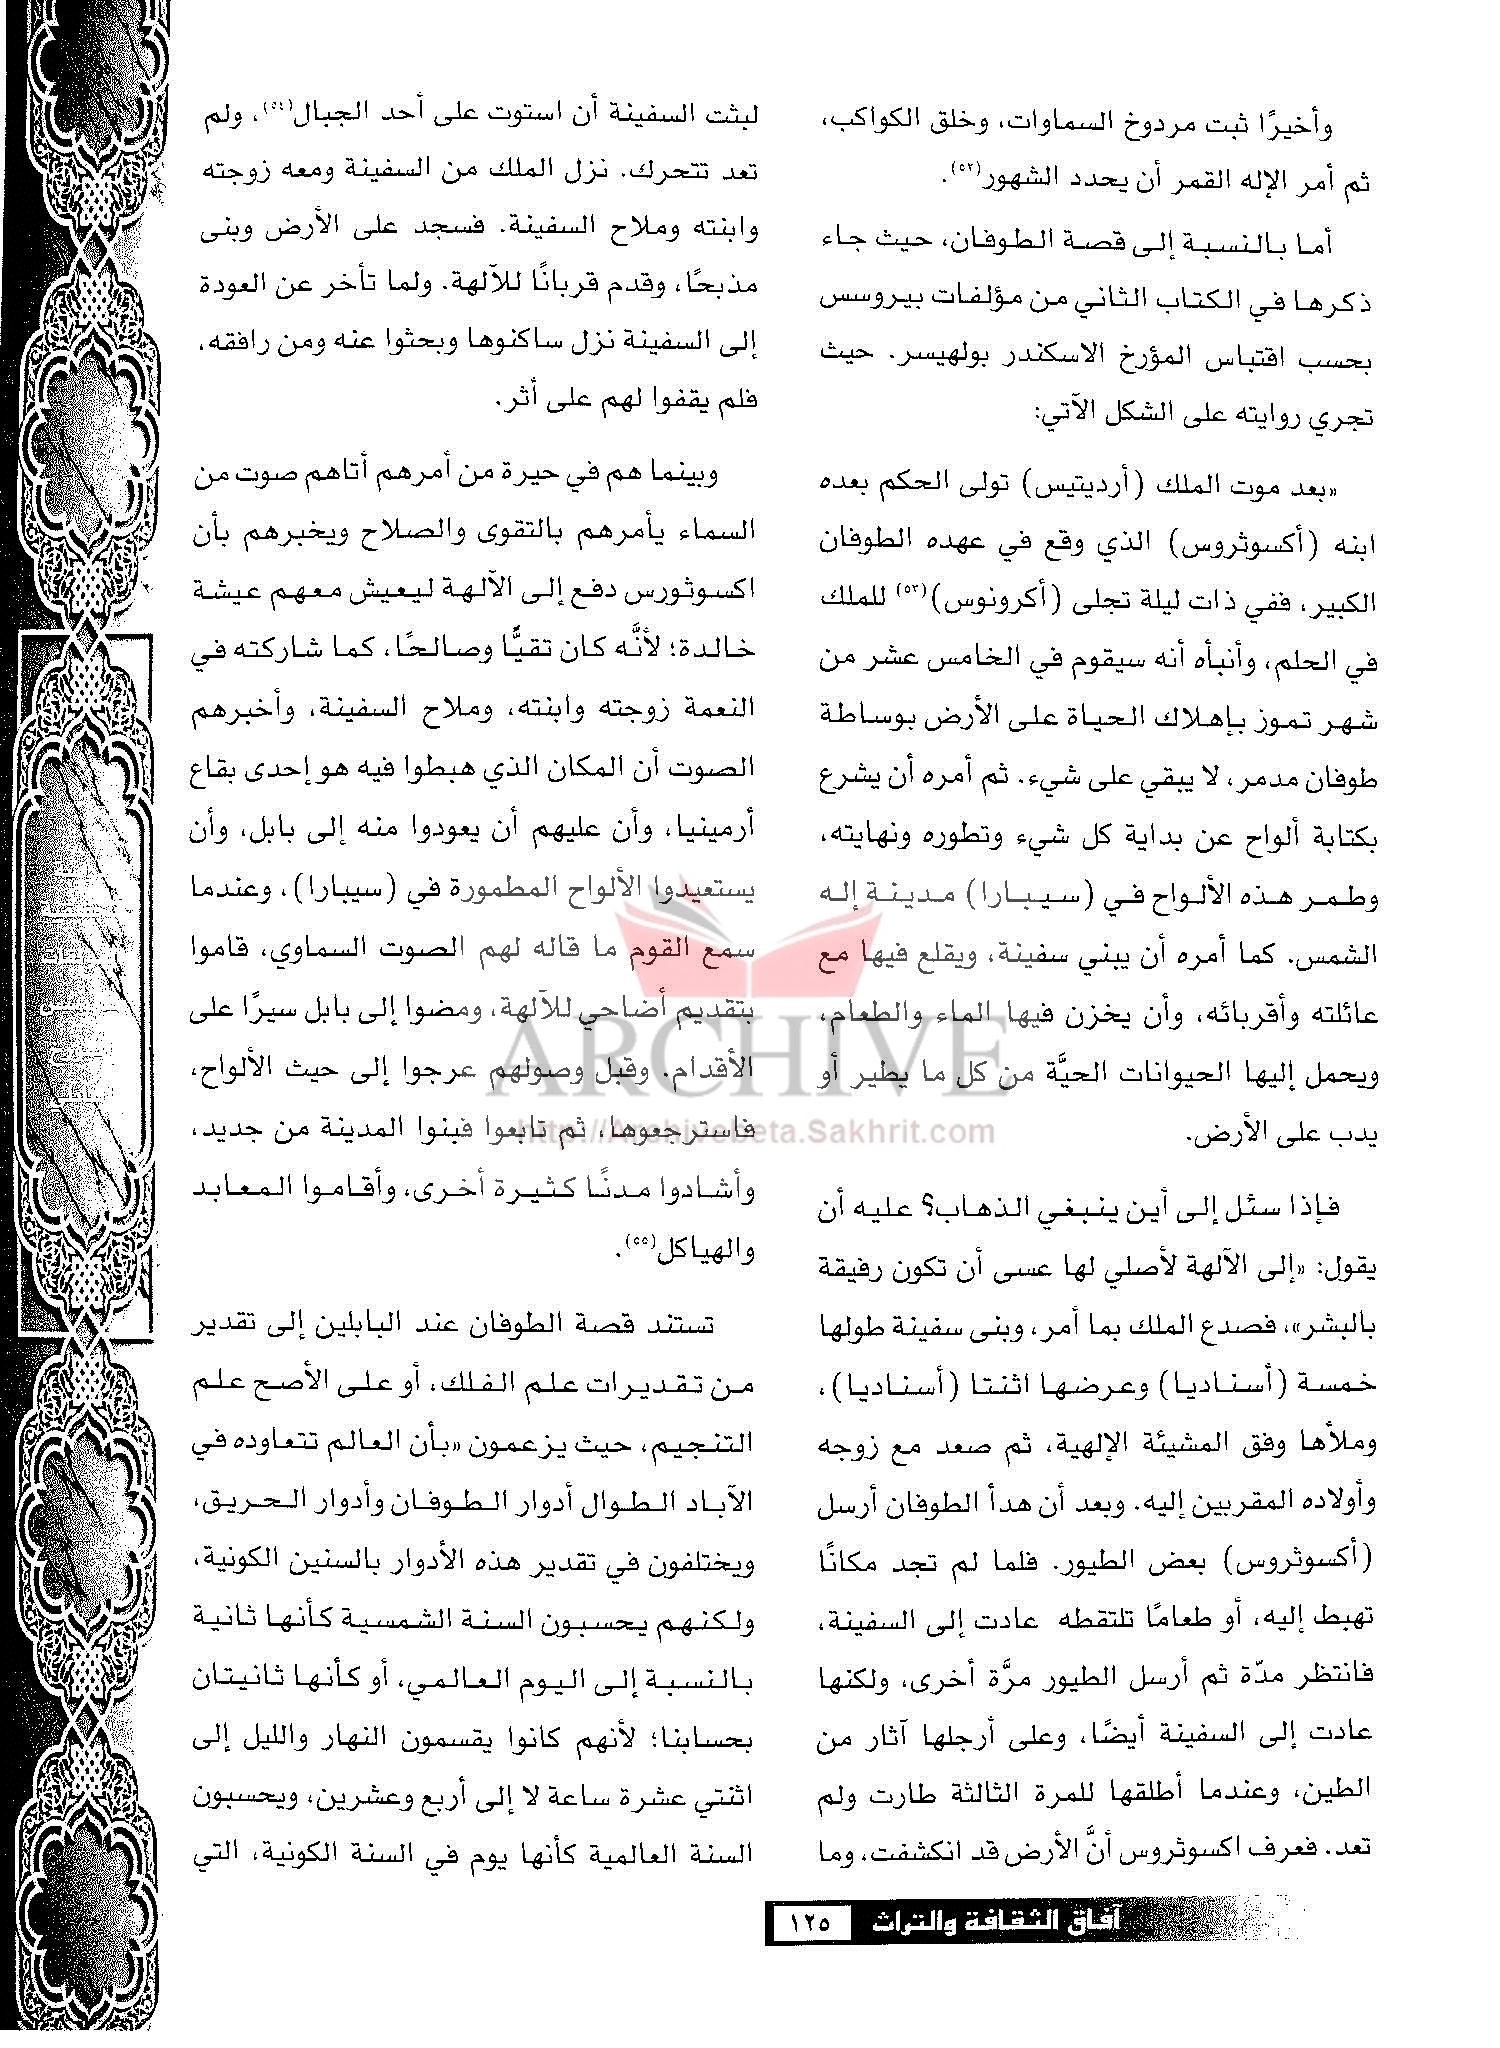 وأخيرًا ثبت مردوخ السماوات، وخلق الكواكب،
ثم أمر الإله القمر أن يحدد الشهور(٥٢).
أما بالنسبة إلى قصة الطوفان، حيث جاء
ذكرها في الكتاب الثاني من مؤلفات بيروسس
بحسب اقتباس المؤرخ الاسكندر بولهيسر. حيث
تجري روايته على الشكل الآتي:
«بعد موت الملك (أرديتيس) تولى الحكم بعده
ابنه (أكسوثروس) الذي وقع في عهده الطوفان
الكبير، ففي ذات ليلة تجلى (أكرونوس)(٥٣) للملك
في الحلم، وأنبأه أنه سيقوم في الخامس عشر من
شهر تموز بإهلاك الحياة على الأرض بوساطة
طوفان مدمر، لا يبقي على شيء. ثم أمره أن يشرع
بكتابة ألواح عن بداية كل شيء وتطوره ونهايته،
وطمر هذه الألواح في (سيبارا) مدينة إله
الشمس. كما أمره أن يبني سفينة، ويقلع فيها مع
عائلته وأقربائه، وأن يخزن فيها الماء والطعام،
ويحمل إليها الحيوانات الحيَّة من كل ما يطير أو
يدب على الأرض.
فإذا سئل إلى أين ينبغي الذهاب؟ عليه أن
يقول: «إلى الآلهة لأصلي لها عسى أن تكون رفيقة
بالبشر»، فصدع الملك بما أمر، وبنى سفينة طولها
خمسة (أستاديا) وعرضها اثنتا (أستاديا)،
وملأها وفق المشيئة الإلهية، ثم صعد مع زوجه
وأولاده المقربين إليه. وبعد أن هدأ الطوفان أرسل
(أكسوثروس) بعض الطيور. فلما لم تجد مكانًا
تهبط إليه، أو طعامًا تلتقطه عادت إلى السفينة،
فانتظر مدّة ثم أرسل الطيور مرَّة أخرى، ولكنها
عادت إلى السفينة أيضًا، وعلى أرجلها آثار من
الطين، وعندما أطلقها للمرة الثالثة طارت ولم
تعد. فعرف اكسوثروس أنَّ الأرض قد انكشفت، وما
لبثت السفينة أن استوت على أحد الجبال(٥٤)، ولم
تعد تتحرك. نزل الملك من السفينة ومعه زوجته
وابنته وملاح السفينة. فسجد على الأرض وبنى
مذبحًا، وقدم قربانًا للآلهة. ولما تأخر عن العودة
إلى السفينة نزل ساكنوها وبحثوا عنه ومن رافقه،
فلم يقفوا لهم على أثر.
وبينما هم في حيرة من أمرهم أتاهم صوت من
السماء يأمرهم بالتقوى والصلاح ويخبرهم بأن
اكسوثورس دفع إلى الآلهة ليعيش معهم عيشة
خالدة؛ لأنَّه كان تقيًّا وصالحًا، كما شاركته في
النعمة زوجته وابنته، وملاح السفينة، وأخبرهم
الصوت أن المكان الذي هبطوا فيه هو إحدى بقاع
أرمينيا، وأن عليهم أن يعودوا منه إلى بابل، وأن
يستعيدوا الألواح المطمورة في (سيبارا)، وعندما
سمع القوم ما قاله لهم الصوت السماوي، قاموا
بتقديم أضاحي للآلهة، ومضوا إلى بابل سيرًا على
الأقدام. وقبل وصولهم عرجوا إلى حيث الألواح،
فاسترجعوها، ثم تابعوا فبنوا المدينة من جديد،
وأشادوا مدنًا كثيرة أخرى، وأقاموا المعابد
والهياكل(٥٥).
تستند قصة الطوفان عند البابلين إلى تقدير
من تقديرات علم الفلك، أو على الأصح علم
التنجيم، حيث يزعمون «بأن العالم تتعاوده في
الآباد الطوال أدوار الطوفان وأدوار الحريق،
ويختلفون في تقدير هذه الأدوار بالسنين الكونية،
ولكنهم يحسبون السنة الشمسية كأنها ثانية
بالنسبة إلى اليوم العالمي، أو كأنها ثانيتان
بحسابنا؛ لأنهم كانوا يقسمون النهار والليل إلى
اثنتي عشرة ساعة لا إلى أربع وعشرين، ويحسبون
السنة العالمية كأنها يوم في السنة الكونية، التي
ARCHIVE
http://Archivebeta.Sakhrit.com
آفاق الثقافة والتراث ١٢٥